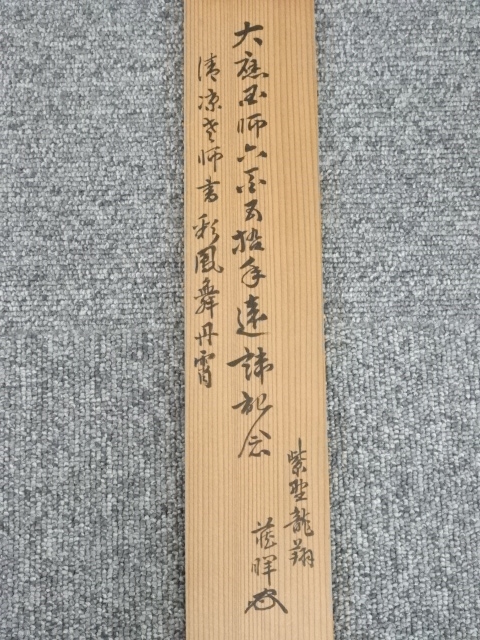 大應国師六百五拾年遠諱記念
清凉老師書彩鳳舞丹霄
紫野龍翔
藏暉